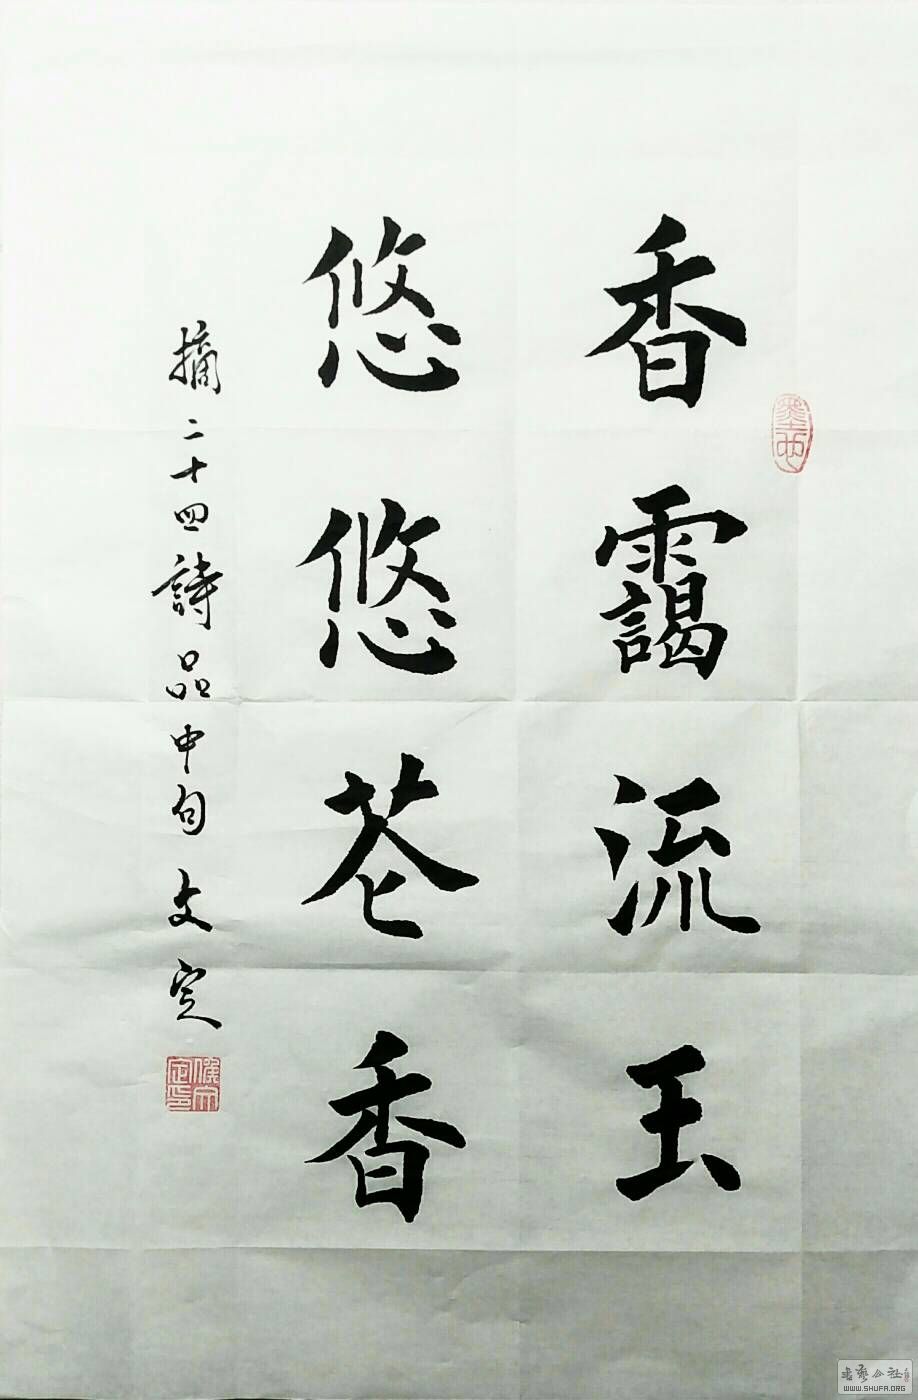 香靄流玉
悠悠花香
摘二十四詩品中句 文定
侯文定印
书艺公社
WWW.SHUFA.ORG